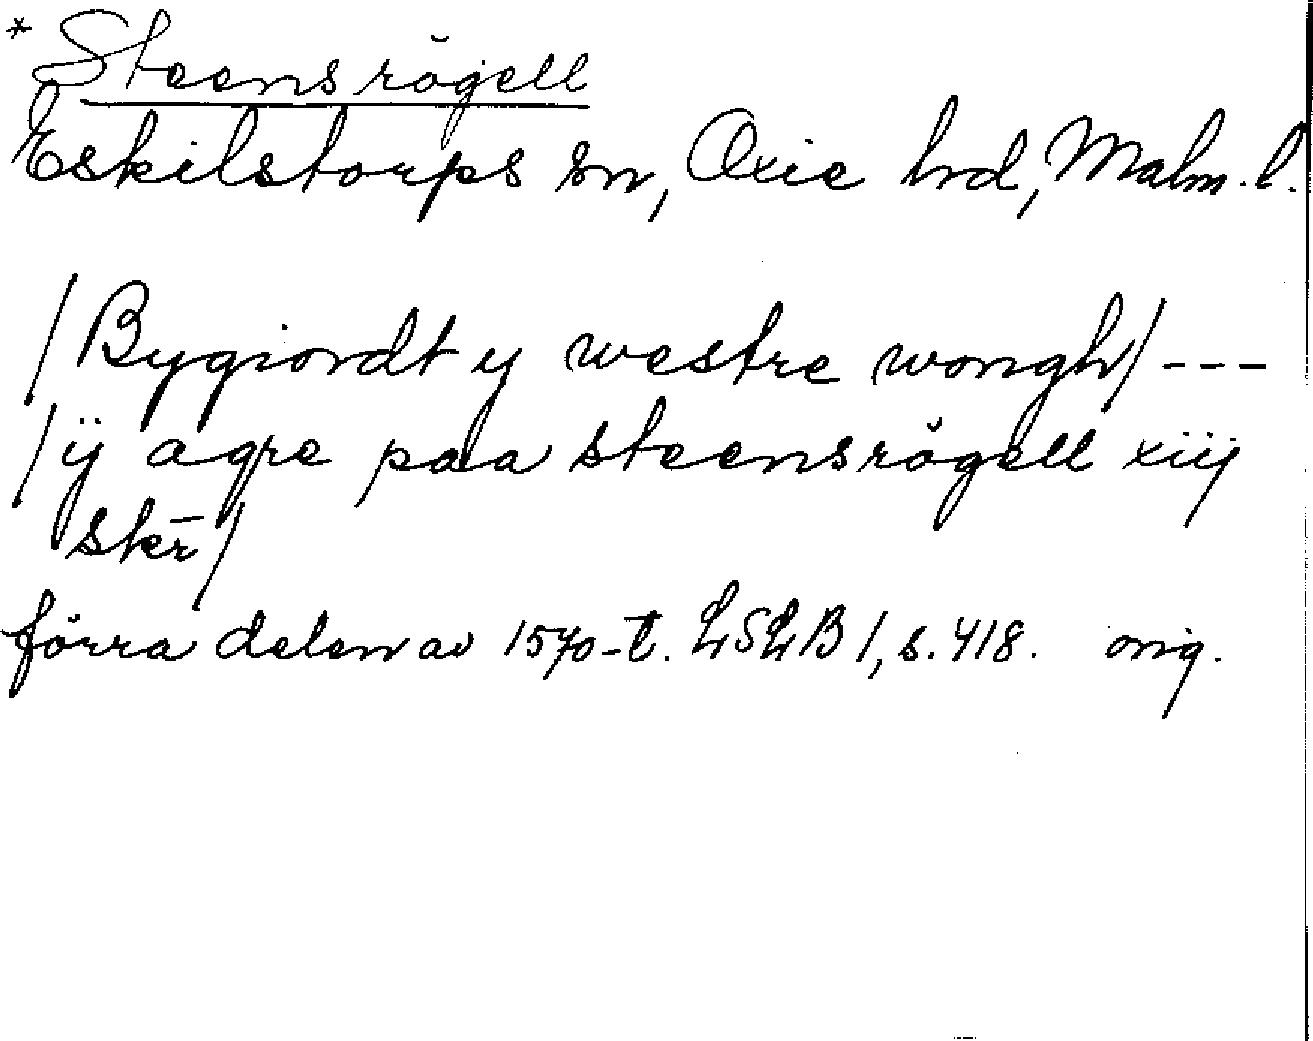 * Steensrŏgell
Eskilstorps sn, Oxie hrd, Malm. l.
/Bygiordt y westre wongh/ ---
/ÿ agre paa steensrŏgell xiij
skr̄/
förra delen av 1570-t. LSLB 1, s. 418. orig.